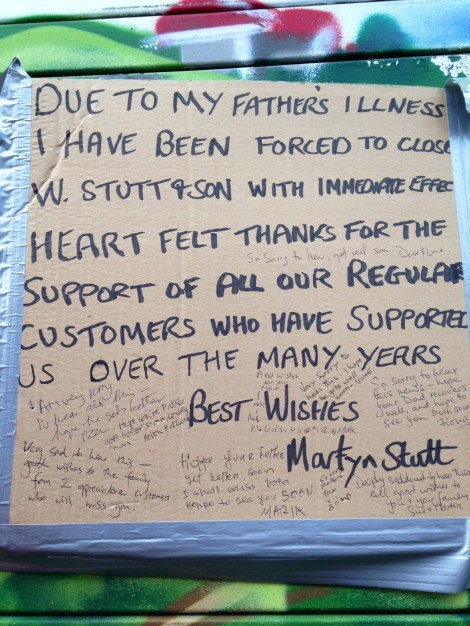 DUE TO MY FATHER'S ILLNESS
I HAVE BEEN FORCED TO CLOSE
W. STUTT & SON WITH IMMEDIATE EFFEC
HEART FELT THANKS FOR THE
So Sorry to hear, get well soon.
SUPPORT OF ALL OUR REGULAR
CUSTOMERS WHO HAVE SUPPORTED
US OVER THE MANY YEARS
BEST WISHES
Martyn Stutt
I Am very sorry
to hear this
hope he gets better
Very sad to hear this —
good wishes to the family
from 2 appreciative customers
who will miss you.
Hope your better
get better soon
I shall miss both
Hope to see you SOON
MARIA
Best wishes
Very sorry to
So sorry to hear
this news - hope
your Dad recovers
well, and hope to
see you both soon
Deeply saddened to hear this
All good wishes to
you & your family